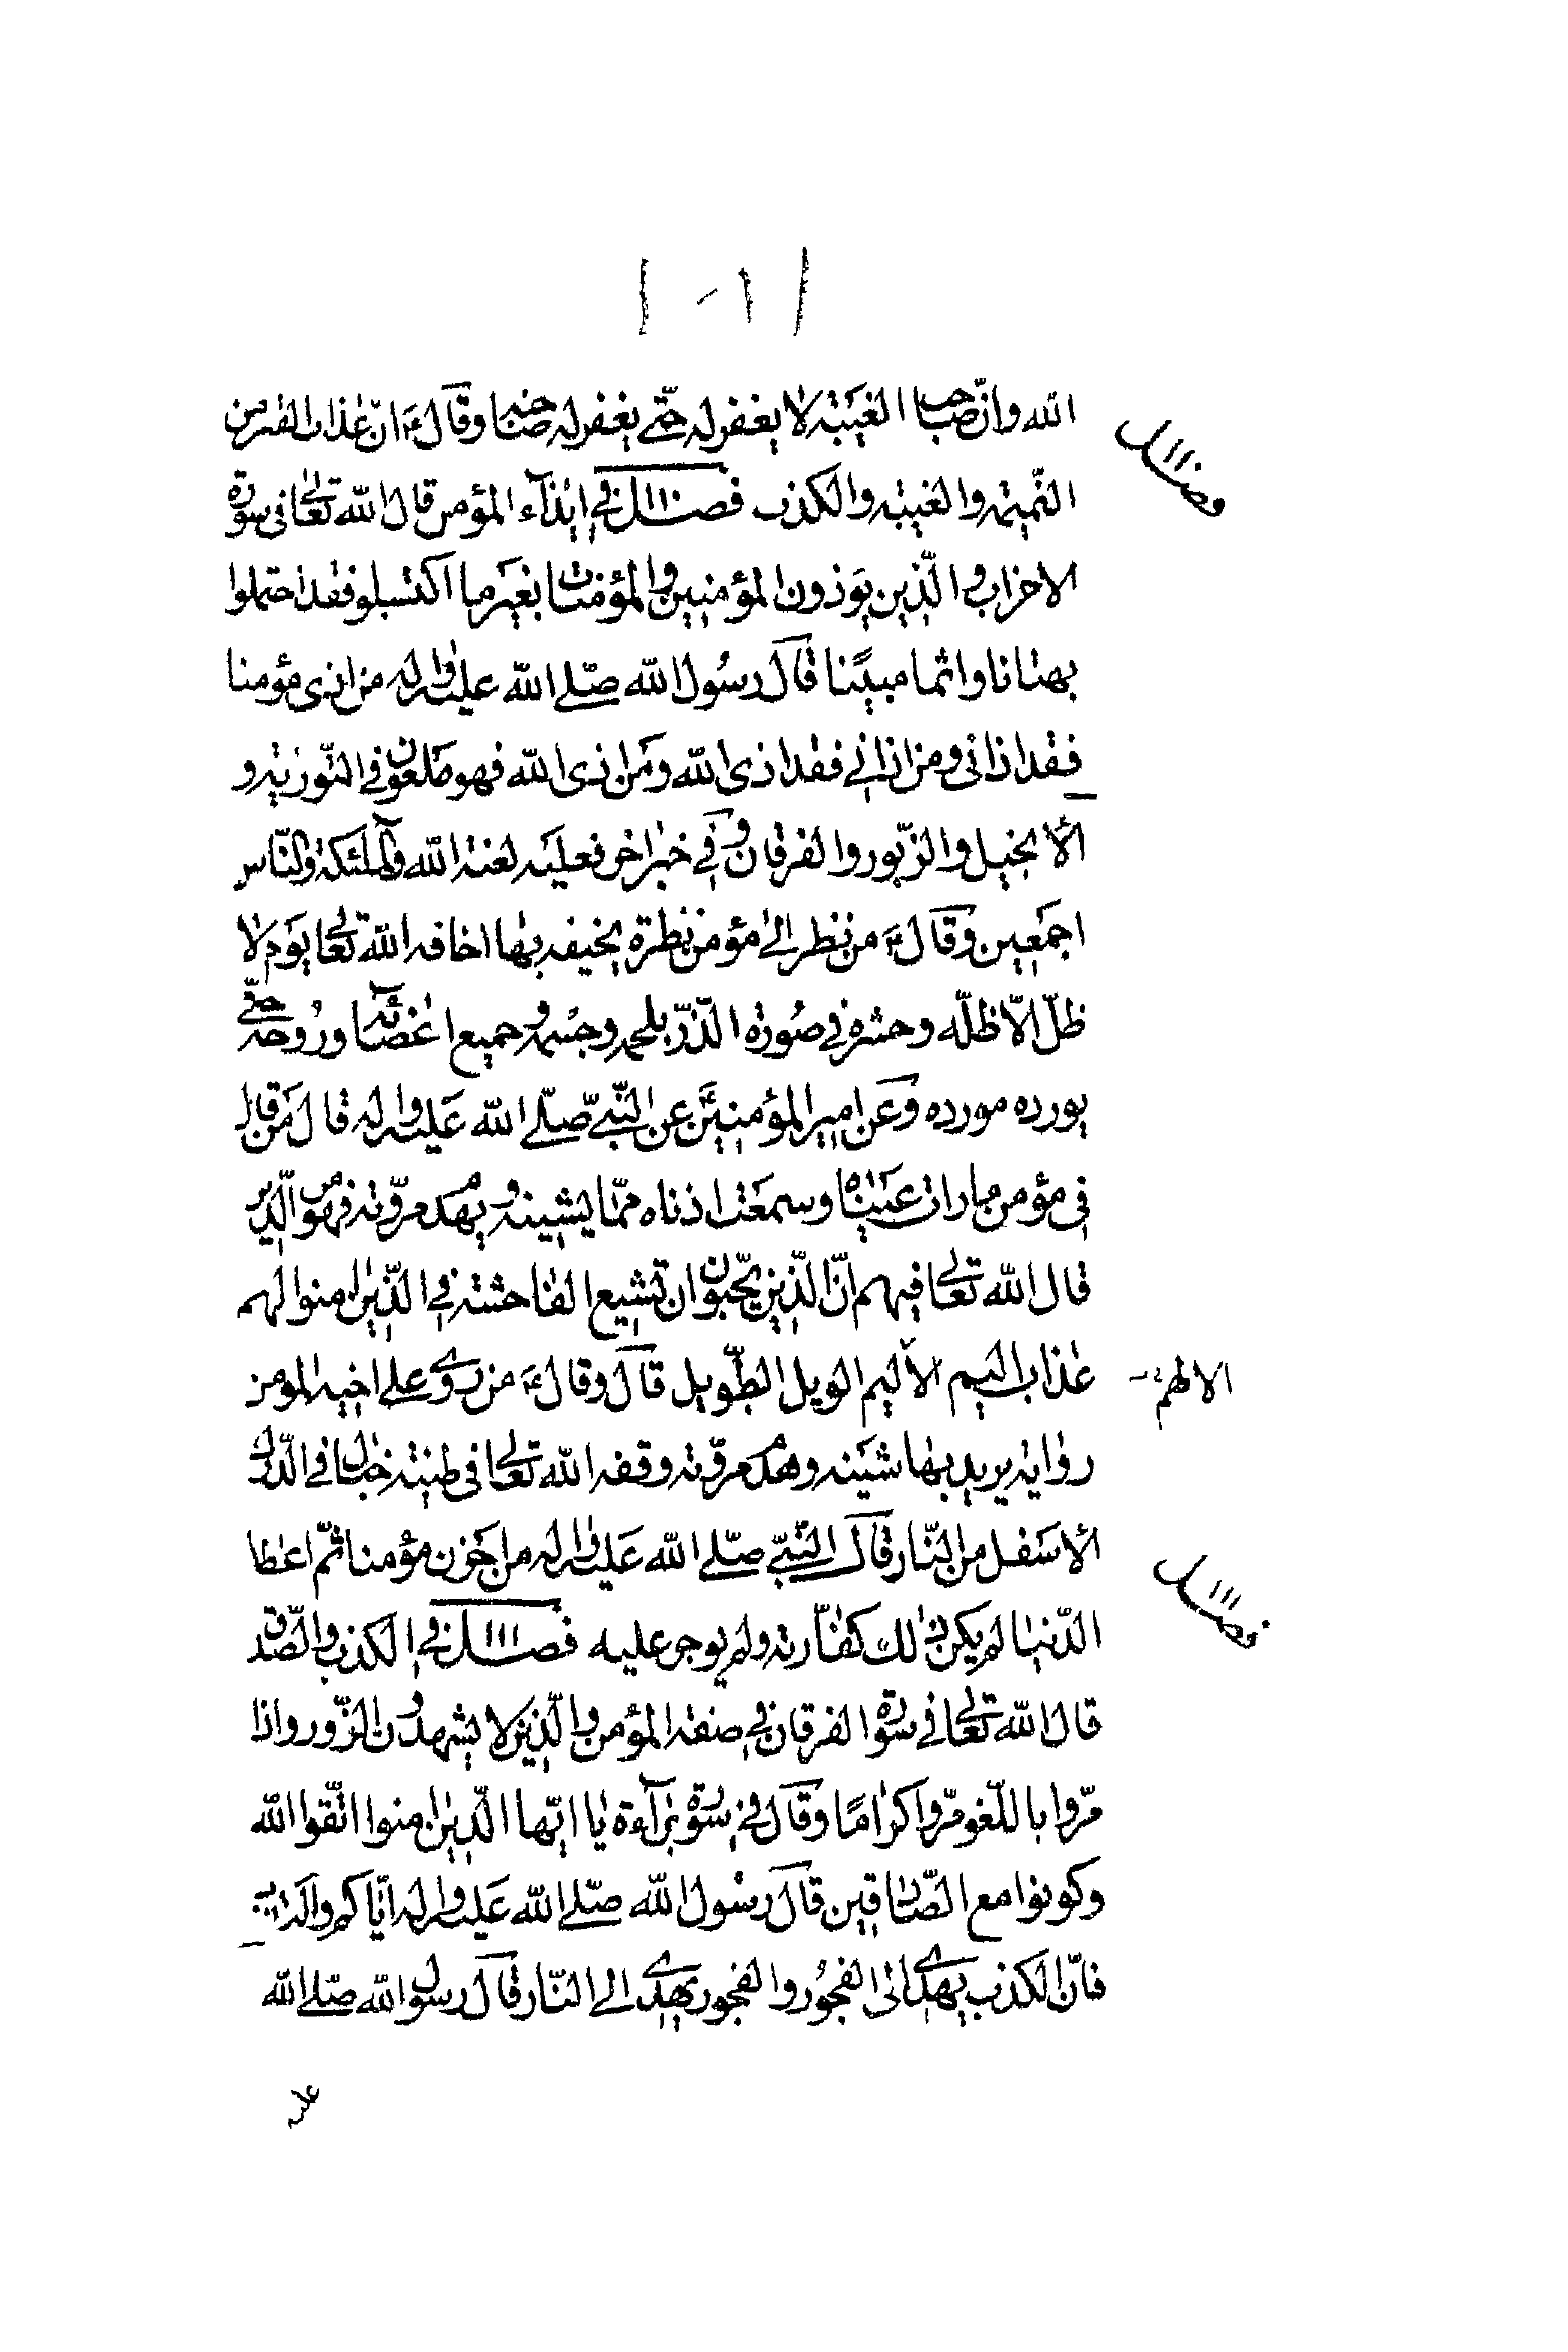 الله وانّ صاحب الغيبة لا يغفر له حتّى يغفر له صاحبه وقال ع انّ عذاب القبر من
النّميمة والغيبة والكذب فصل في ايذآء المؤمن قال الله تعالى في سورة
الاحزاب والّذين يؤذون المؤمنين والمؤمنات بغير ما اكتسبوا فقد احتملوا
بهتانا واثما مبينا قال رسول الله صلّى الله عليه واله من اذى مؤمنا
فقد اذانى ومن اذانى فقد اذى الله ومن اذى الله فهو ملعون في التّورية و
الأنجيل والزّبور والفرقان وفي خبر اخر فعليه لعنة الله والملئكة والنّاس
اجمعين وقال ع من نظر الى مؤمن نظرة يخيفه بها اخافه الله تعالى يوم لا
ظلّ الّا ظلّه وحشره في صورة الذّرّ بلحمه وجسمه وجميع اعضآئه وروحه حتّى
يورده مورده وعن امير المؤمنين ع عن النّبيّ صلّى الله عليه واله قال من قال
في مؤمن ما رات عيناه وسمعت اذناه ممّا يشينه ويهدم مروّته فهو من الّذين
قال الله تعالى فيهم انّ الّذين يحبّون ان تشيع الفاحشة في الّذين امنوا لهم
عذاب اليم الأليم الويل الطّويل قال وقال ع من روى على اخيه المؤمن
الالهم
رواية يريد بها شينه وهدم مروّته وقفه الله تعالى في طينة خبال في الدّرك
الأسفل من النّار قال النّبيّ صلّى الله عليه واله من احزن مؤمنا ثمّ اعطا
الدّنيا لم يكن ذلك كفّارته ولم يوجر عليه فصل في الكذب والصّدق
قال الله تعالى في سورة الفرقان في صفة المؤمن والّذين لا يشهدون الزّور واذا
مرّوا باللّغو مرّوا كراما وقال في سورة برآءة يا ايّها الّذين امنوا اتّقوا الله
وكونوا مع الصّادقين قال رسول الله صلّى الله عليه واله ايّاكم والكذب
فانّ الكذب يهدى الى الفجور والفجور يهدى الى النّار قال رسول الله صلّى الله
عليه
فصل
فصل